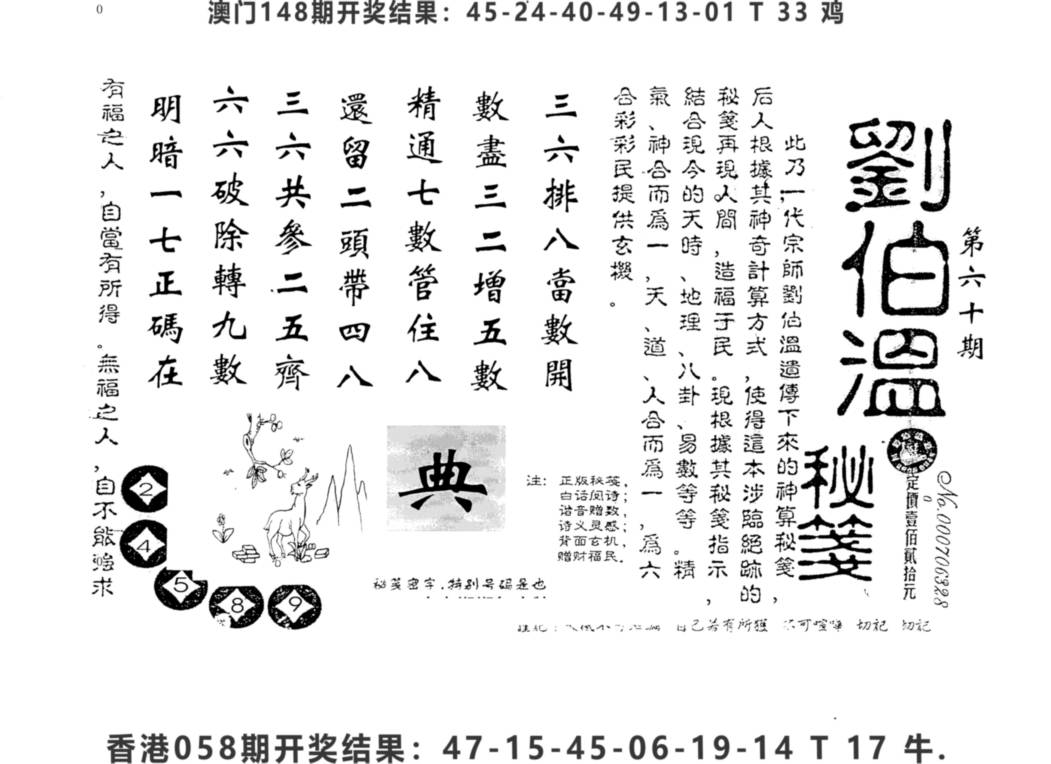 0
澳门148期开奖结果：45-24-40-49-13-01 T 33 鸡
第六十期
劉伯溫
秘箋
No.000706328
定價壹佰貳拾元
此乃一代宗師劉伯溫遺傳下來的神算秘箋，
后人根據其神奇計算方式，使得這本涉臨絕跡的
秘箋再現人間，造福于民。現根據其秘箋指示，
結合現今的天時、地理、八卦、易數等等。精
氣、神合而爲一，天、道、人合而爲一，爲六
合彩彩民提供玄機。
三六排八當數開
數盡三二增五數
精通七數管住八
還留二頭帶四八
三六共參二五齊
六六破除轉九數
明暗一七正碼在
有福之人，自當有所得。無福之人，自不能強求
典
注：正版秘笺，
白话阅诗；
谐音赠数，
诗义灵感；
背面玄机，
赠财福民。
秘笺密字，特别号码是也
2
4
5
8
9
自己若有所獲 不可喧嘩 切記 切記
香港058期开奖结果：47-15-45-06-19-14 T 17 牛.